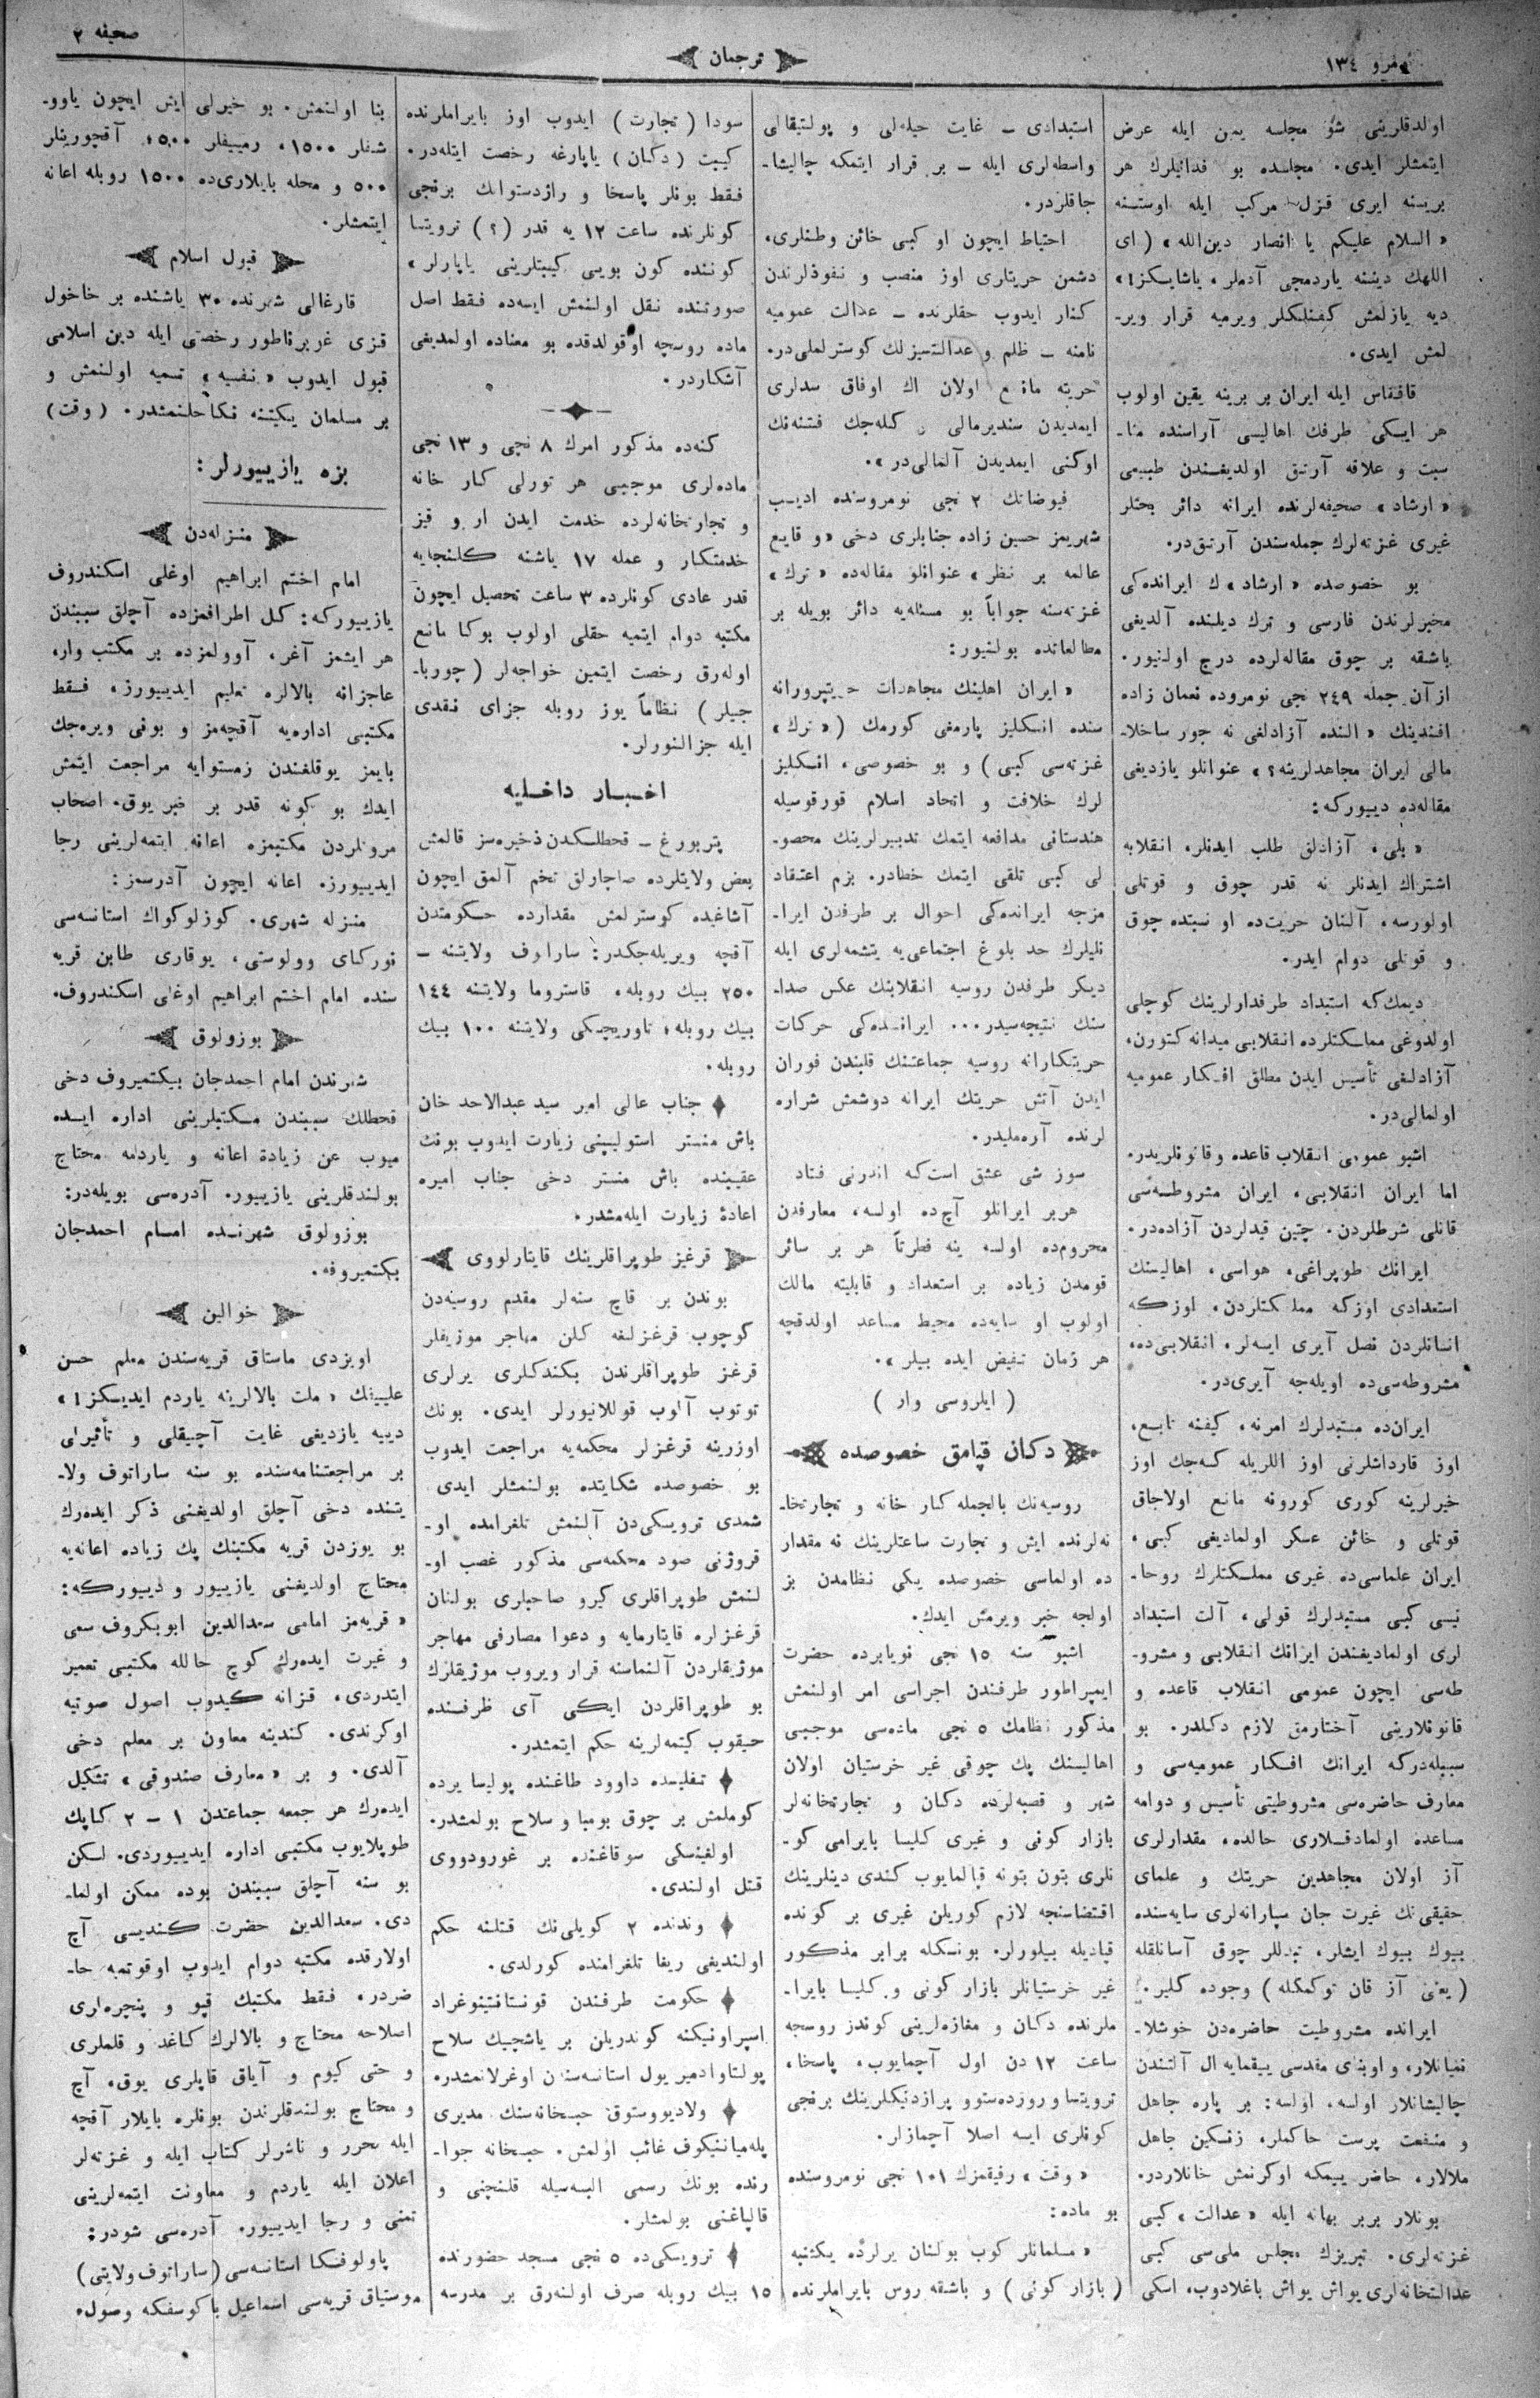 نومرو ١٣٤
ترجمان
صحيفه ٢
اولدقلرينى شؤ مجلسه يمين ايله عرض
ايتمشلر ايدى. مجلسده بو فدائيلرك هر
بريسنه ايرى قزل مركب ايله اوستنه
« السلام عليكم يا انصار دين الله » (اى
اللهك ديننه ياردمجى آدملر، ياشايسكز!»
ديه يازلمش كفنلكلر ويرميه قرار وير-
لمش ايدى.
قافقاس ايله ايران بر برينه يقين اولوب
هر ايكى طرفك اهاليسى آراسنده منا-
سبت و علاقه آرتق اولديغندن طبيعى
« ارشاد » صحيفه‌لرنده ايرانه دائر بحثلر
غيرى غزته‌لرك جمله‌سندن آرتق‌در.
بو خصوصده « ارشاد » ك ايرانده‌كى
مخبرلرندن فارسى و ترك ديلنده آلديغى
باشقه بر چوق مقاله‌لرده درج اولنيور.
ازآن جمله ٢٤٩ نجى نومروده نعمان زاده
افندينك « النده آزادلغى نه جور ساخلا-
مالى ايران مجاهدلرينه؟ » عنوانلو يازديغى
مقاله‌ده دييوركه:
« بلى، آزادلق طلب ايدنلر، انقلابه
اشتراك ايدنلر نه قدر چوق و قوتلى
اولورسه، آلنان حريت‌ده او نسبتده چوق
و قوتلى دوام ايدر.
ديمك‌كه استبداد طرفدارلرينك كوچلى
اولدوغى مملكتلرده انقلابى ميدانه كتورن،
آزادلغى تأسيس ايدن مطلق افكار عموميه
اولمالى‌در.
اشبو عمومى انقلاب قاعده و قانونلريدر.
اما ايران انقلابى، ايران مشروطه‌سى
قانلى شرطلردن، چتين قيدلردن آزاده‌در.
ايرانك طوپراغى، هواسى، اهاليسنك
استعدادى اوزكه مملكتلردن، اوزكه
انسانلردن فصل آيرى ايسه‌لر، انقلابى‌ده،
مشروطه‌سى‌ده اويله‌جه آيرى‌در.
ايران‌ده مستبدلرك امرنه، كيفنه تابع،
اوز قارداشلرنى اوز اللريله كسه‌جك اوز
خيرلرينه كورى كورونه مانع اولاجاق
قوتلى و خائن عسكر اولماديغى كبى،
ايران علماسى‌ده غيرى مملكتلرك روحا-
نيسى كبى مستبدلرك قولى، آلت استبداد
لرى اولماديغندن ايرانك انقلابى و مشرو-
طه‌سى ايچون عمومى انقلاب قاعده و
قانونلارينى آختارمق لازم دكلدر. بو
سببله‌دركه ايرانك افكار عموميه‌سى و
معارف حاضره‌سى مشروطيتى تأسيس و دوامه
مساعده اولمادقلارى حالده، مقدارلرى
آز اولان مجاهدين حريتك و علماى
حقيقى‌نك غيرت جان سپارانه‌لرى سايه‌سنده
بيوك بيوك ايشلر، تبدللر چوق آسانلقله
(يعنى آز قان توكمكله) وجوده كلير.
ايرانده مشروطيت حاضره‌دن خوشلا-
نميانلار، و اوبناى مقدسى ييقمايه ال آلتندن
چاليشانلار اولسه، اولسه: بر پاره جاهل
و منفعت پرست حاكملر، زنكين جاهل
ملالار، حاضر ييمكه اوكرنمش خانلاردر.
بونلار بربر بهانه ايله « عدالت » كبى
غزته‌لرى، تبريزك مجلس ملى‌سى كبى
عدالتخانه‌لرى يواش يواش باغلادوب، اسكى
استبدادى ـ غايت حيله‌لى و پولتيقالى
واسطه‌لرى ايله ـ بر قرار ايتمكه چاليشا-
جاقلردر.
احتياط ايچون او كبى خائن وطنلرى،
دشمن حريتلرى اوز منصب و نفوذلرندن
كنار ايدوب حقلرنده ـ عدالت عموميه
نامنه ـ ظلم و عدالتسيزلك كوسترلملى‌در.
حريته مانع اولان اك اوفاق سدلرى
ايمديدن سنديرمالى و كله‌جك فتنه‌نك
اوكنى ايمديدن آلمالى‌در ».
فيوضاتك ٢ نجى نومروسنده اديب
شهريمز حسين زاده جنابلرى دخى « وقايع
عالمه بر نظر » عنوانلو مقاله‌ده « ترك »
غزته‌سنه جواباً بو مسئله‌يه دائر بويله بر
مطالعاتده بولنيور:
« ايران اهلينك مجاهدات حريتپرورانه
سنده انكليز پارمغى كورمك (« ترك »
غزته‌سى كبى) و بو خصوصى، انكليز
لرك خلافت و اتحاد اسلام قورقوسيله
هندستانى مدافعه ايتمك تدبيرلرينك محصو-
لى كبى تلقى ايتمك خطادر. بزم اعتقاد
مزجه ايرانده‌كى احوال بر طرفدن ايرا-
نليلرك حد بلوغ اجتماعى‌يه يتشمه‌لرى ايله
ديكر طرفدن روسيه انقلابنك عكس صدا-
سنك نتيجه‌سيدر... ايرانده‌كى حركات
حريتكارانه روسيه جماعتنك قلبندن فوران
ايدن آتش حريتك ايرانه دوشمش شراره
لرنده آره‌مليدر.
سوز شى عشق است‌كه اندرنى فتاد
هربر ايرانلو آچ‌ده اولسه، معارفدن
محروم‌ده اولسه ينه فطرتاً هر بر سائر
قومدن زياده بر استعداد و قابليته مالك
اولوب او سايه‌ده محيط مساعد اولدقچه
هر زمان تفيض ايده بيلر ».
(ايلروسى وار)
دكان قپامق خصوصده
روسيه‌نك بالجمله كار خانه و تجارتخا-
نه‌لرنده ايش و تجارت ساعتلرينك نه مقدار
ده اولماسى خصوصده يكى نظامدن بز
اولجه خبر ويرمش ايدك.
اشبو سنه ١٥ نجى نويابرده حضرت
ايمپراطور طرفندن اجراسى امر اولنمش
مذكور نظامك ٥ نجى ماده‌سى موجبى
اهاليسنك پك چوقى غير خرستيان اولان
شهر و قصبه‌لرده دكان و تجارتخانه‌لر
بازار كونى و غيرى كليسا بايرامى كو-
نلرى بتون بتونه قپالمايوب كندى دينلرينك
اقتضاسنجه لازم كوريلن غيرى بر كونده
قپاديله بيلورلر. بونكله برابر مذكور
غير خرستيانلر بازار كونى و كليسا بايرا-
ملرنده دكان و مغازه‌لرينى كوندز روسجه
ساعت ١٢ دن اول آچمايوب، پاسخا،
ترويتسا و روژدستوو پرازدنيكلرينك برنجى
كونلرى ايسه اصلا آچمازلر.
« وقت » رفيقمزك ١٠١ نجى نومروسنده
بو ماده:
« مسلمانلر كوب بولنان يرلرده يكشنبه
(بازار كونى) و باشقه روس بايراملرنده
سودا (تجارت) ايدوب اوز بايراملرنده
كيبت (دكان) ياپارغه رخصت ايتله‌در.
فقط بونلر پاسخا و راژدستوانك برنجى
كونلرنده ساعت ١٢ يه قدر (؟) ترويتسا
كوننده كون بويى كيبتلرينى ياپارلر »
صورتنده نقل اولنمش ايسه‌ده فقط اصل
ماده روسچه اوقولدقده بو معناده اولمديغى
آشكاردر.
كنه‌ده مذكور امرك ٨ نجى و ١٣ نجى
ماده‌لرى موجبى هر تورلى كار خانه
و تجارتخانه‌لرده خدمت ايدن ار و قيز
خدمتكار و عمله ١٧ ياشنه كلنجه‌يه
قدر عادى كونلرده ٣ ساعت تحصيل ايچون
مكتبه دوام ايتميه حقلى اولوب بوكا مانع
اوله‌رق رخصت ايتمين خواجه‌لر (چوربا-
جيلر) نظاماً يوز روبله جزاى نقدى
ايله جزالنورلر.
اخبار داخليه
پتربورغ ـ قحطلكدن ذخيره‌سز قالمش
بعض ولايتلرده صاچارلق تخم آلمق ايچون
آشاغيده كوسترلمش مقدارده حكومتدن
آقچه ويريله‌جكدر: ساراوف ولايتنه ـ
٢٥٠ بيك روبله، قاستروما ولايتنه ١٤٤
بيك روبله، تاوريچسكى ولايتنه ١٠٠ بيك
روبله.
جناب عالى امير سيد عبدالاحد خان
باش منستر استوليپنى زيارت ايدوب بونك
عقبنده باش منستر دخى جناب اميره
اعادهٔ زيارت ايله‌مشدر.
قرغيز طوپراقلرينك قايتارلووى
بوندن بر قاچ سنه‌لر مقدم روسيه‌دن
كوچوب قرغزلغه كلن مهاجر موژيقلر
قرغز طوپراقلرندن بكندكلرى يرلرى
توتوب آلوب قوللانيورلر ايدى. بونك
اوزرينه قرغزلر محكمه‌يه مراجعت ايدوب
بو خصوصده شكايتده بولنمشلر ايدى
شمدى ترويسكى‌دن آلنمش تلغرامده او-
قروژنى صود محكمه‌سى مذكور غصب او-
لنمش طوپراقلرى كيرو صاحبلرى بولنان
قرغزلره قايتارمايه و دعوا مصارفى مهاجر
موژيقلردن آلنماسنه قرار ويروب موژيقلرك
بو طوپراقلردن ايكى آى ظرفنده
چيقوب كيتمه‌لرينه حكم ايتمشدر.
تفليسده داوود طاغنده پوليسا يرده
كوملمش بر چوق بومبا و سلاح بولمشدر.
اولغينسكى سوقاغنده بر غورودووى
قتل اولندى.
وندنده ٢ كويلى‌نك قتلنه حكم
اولنديغى ريغا تلغرامنده كورلدى.
حكومت طرفندن قونستانتينوغراد
اسپراونيكنه كوندريلن بر ياشچيك سلاح
پولتاوادمير يول استانسه‌سندن اوغرلانمشدر.
ولاديووستوق حبسخانه‌سنك مديرى
پله‌ميانتيكوف غائب اولمش. حبسخانه جوا-
رنده بونك رسمى البسه‌سيله قلنچنى و
قالپاغنى بولمشلر.
ترويسكى‌ده ٥ نجى مسجد حضورنده
١٥ بيك روبله صرف اولنه‌رق بر مدرسه
بنا اولنمش. بو خيرلى ايش ايچون ياوو-
شفلر ١٥٠٠، رمييفلر ٥٠٠، آقچورينلر
٥٠٠ و محله بايلارى‌ده ١٥٠٠ روبله اعانه
ايتمشلر.
قبول اسلام
قارغالى شهرنده ٣٠ ياشنده بر خاخول
قزى غربرناطور رخصتى ايله دين اسلامى
قبول ايدوب « نفسيه » تسميه اولنمش و
بر مسلمان يكيتنه نكاحلنمشدر. (وقت)
بزه يازييورلر:
منزله‌دن
امام اختم ابراهيم اوغلى اسكندروف
يازييوركه: كل اطرافمزده آچلق سببندن
هر ايشمز آغر، آوولمزده بر مكتب وار،
عاجزانه بالالره تعليم ايدييورز، فقط
مكتبى اداره‌يه آقچه‌مز و بونى ويره‌جك
بايمز يوقلغندن زمستوايه مراجعت ايتمش
ايدك بو كونه قدر بر خبر يوق. اصحاب
مروتلردن مكتبمزه اعانه ايتمه‌لرينى رجا
ايدييورز. اعانه ايچون آدرسمز:
منزله شهرى. كوزلوكواك استانسه‌سى
توركاى وولوستى، يوقارى طابن قريه
سنده امام اختم ابراهيم اوغلى اسكندروف.
بوزولوق
شهرندن امام احمدجان بيكتميروف دخى
قحطلك سببندن مكتبلرينى اداره ايده
ميوب عن زيادة اعانه و ياردمه محتاج
بولندقلرينى يازييور. آدره‌سى بويله‌در:
بوزولوق شهرنده امام احمدجان
بكتميروفه.
خوالين
اويزدى ماستاق قريه‌سندن معلم حسن
علييفك « ملت بالالرينه ياردم ايديسكز! »
دييه يازديغى غايت آچيقلى و تأثيرلى
بر مراجعتنامه‌سنده بو سنه ساراتوف ولا-
يتنده دخى آچلق اولديغنى ذكر ايده‌رك
بو يوزدن قريه مكتبنك پك زياده اعانه‌يه
محتاج اولديغنى يازييور و دييوركه:
« قريه‌مز امامى سعدالدين ابوبكروف سعى
و غيرت ايده‌رك كوچ حالله مكتبى تعمير
ايتدردى، قزانه كيدوب اصول صوتيه
اوكرندى. كندينه معاون بر معلم دخى
آلدى. و بر « معارف صندوقى » تشكيل
ايده‌رك هر جمعه جماعتدن ١ ـ ٢ كاپك
طوپلايوب مكتبى اداره ايدييوردى. لكن
بو سنه آچلق سببندن بوده ممكن اولما-
دى. سعدالدين حضرت كنديسى آچ
اولارقده مكتبه دوام ايدوب اوقوتمه حا-
ضردر، فقط مكتبك قپو و پنچره‌لرى
اصلاحه محتاج و بالالرك كاغد و قلملرى
و حتى كيوم و آياق قاپلرى يوق، آچ
و محتاج بولندقلرندن بونلره بايلار آقچه
ايله محرر و ناشرلر كتاب ايله و غزته‌لر
اعلان ايله ياردم و معاونت ايتمه‌لرينى
تمنى و رجا ايدييور. آدره‌سى شودر:
پاولوفسكا استانسه‌سى (ساراتوف ولايتى)
موستياق قريه‌سى اسماعيل باكوسفكه وصول.